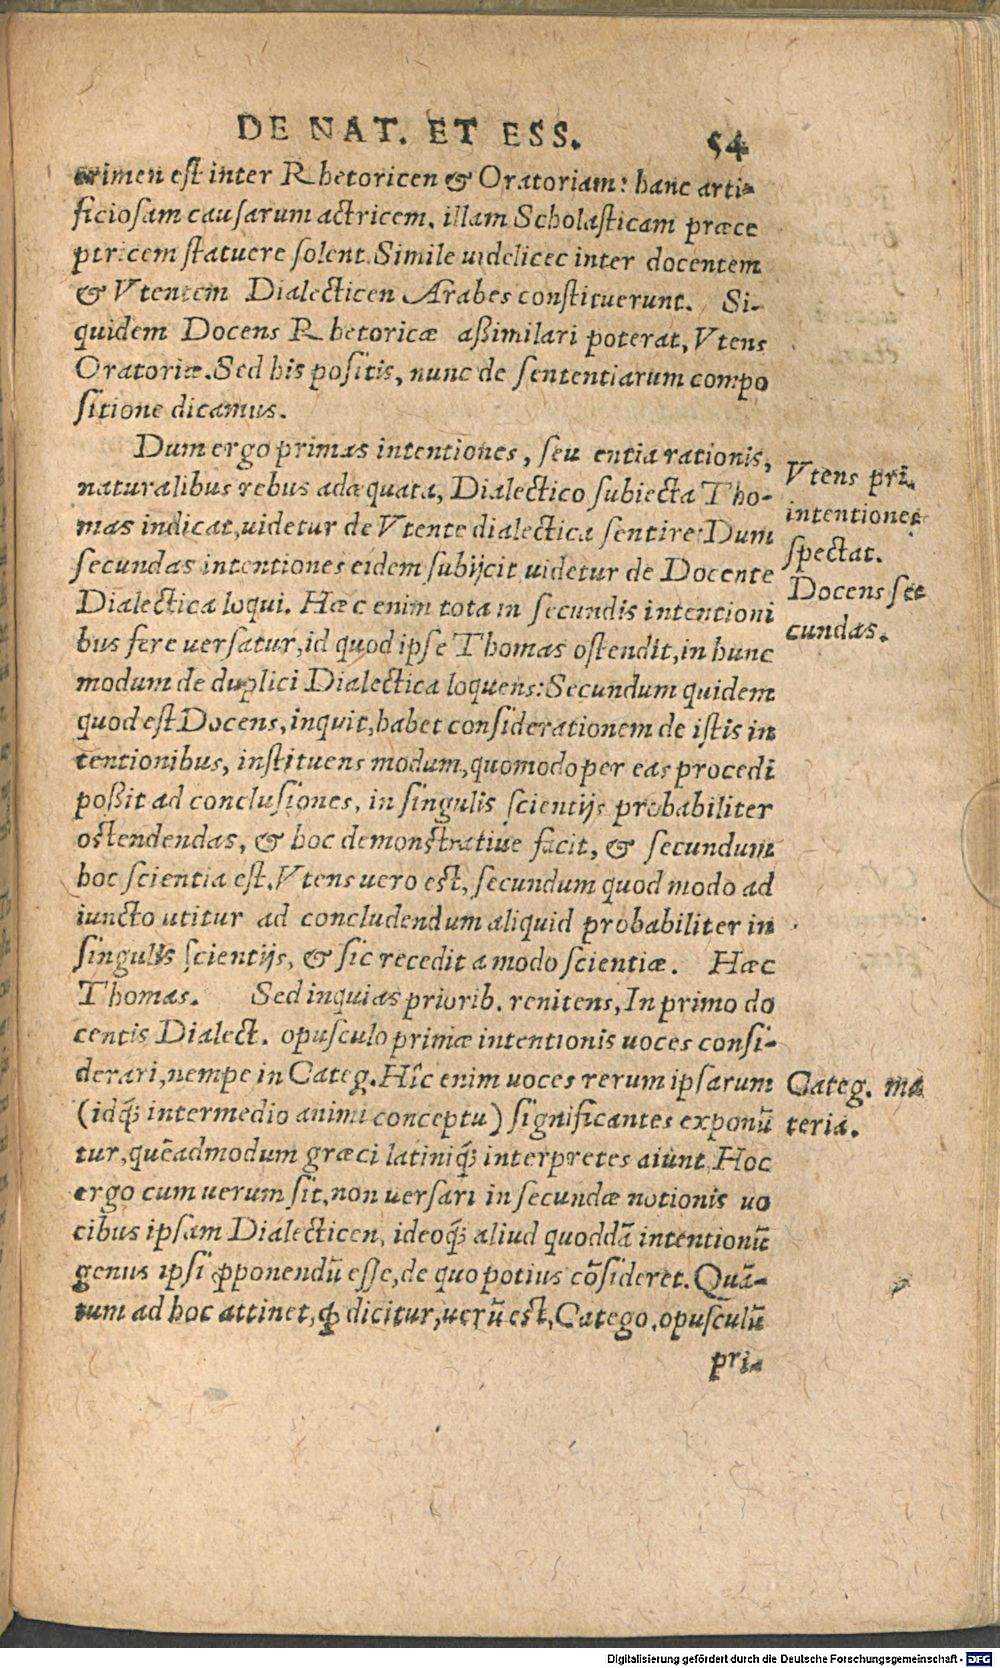 DE NAT. ET ESS. 54
crimen est inter Rhetoricen & Oratoriam: hanc arti-
ficiosam causarum actricem, illam Scholasticam præce
ptricem statuere solent. Simile uidelicec inter docentem
& Vtentem Dialecticen Arabes constituerunt. Si-
quidem Docens Rhetoricæ aßimilari poterat, Vtens
Oratoriæ. Sed his positis, nunc de sententiarum compo
sitione dicamus.
Dum ergo primas intentiones, seu entia rationis,
naturalibus rebus adæquata, Dialectico subiecta Tho-
mas indicat, uidetur de Vtente dialectica sentire: Dum
secundas intentiones eidem subijcit uidetur de Docente
Dialectica loqui. Hæc enim tota in secundis intentioni
bus fere uersatur, id quod ipse Thomas ostendit, in hunc
modum de duplici Dialectica loquens: Secundum quidem
quod est Docens, inquit, habet considerationem de istis in
tentionibus, instituens modum, quomodo per eas procedi
poßit ad conclusiones, in singulis scientijs probabiliter
ostendendas, & hoc demonstratiue facit, & secundum
hoc scientia est. Vtens uero est, secundum quod modo ad
iuncto utitur ad concludendum aliquid probabiliter in
singulis scientijs, & sic recedit a modo scientiæ. Hæc
Thomas. Sed inquias priorib. renitens, In primo do
centis Dialect. opusculo primæ intentionis uoces consi-
derari, nempe in Categ. Hîc enim uoces rerum ipsarum
(idq́; intermedio animi conceptu) significantes exponũ
tur, quẽadmodum græci latiniq́; interpretes aiunt. Hoc
ergo cum uerum sit, non uersari in secundæ notionis uo
cibus ipsam Dialecticen, ideoq́; aliud quoddã intentionũ
genus ipsi ꝓponendũ esse, de quo potius cõsideret. Quã-
tum ad hoc attinet, ꝙ dicitur, uerũ est, Catego. opusculũ
pri-
Vtens pri.
intentiones
spectat.
Docens se
cundas.
Categ. ma
teria.
Digitalisierung gefördert durch die Deutsche Forschungsgemeinschaft - DFG